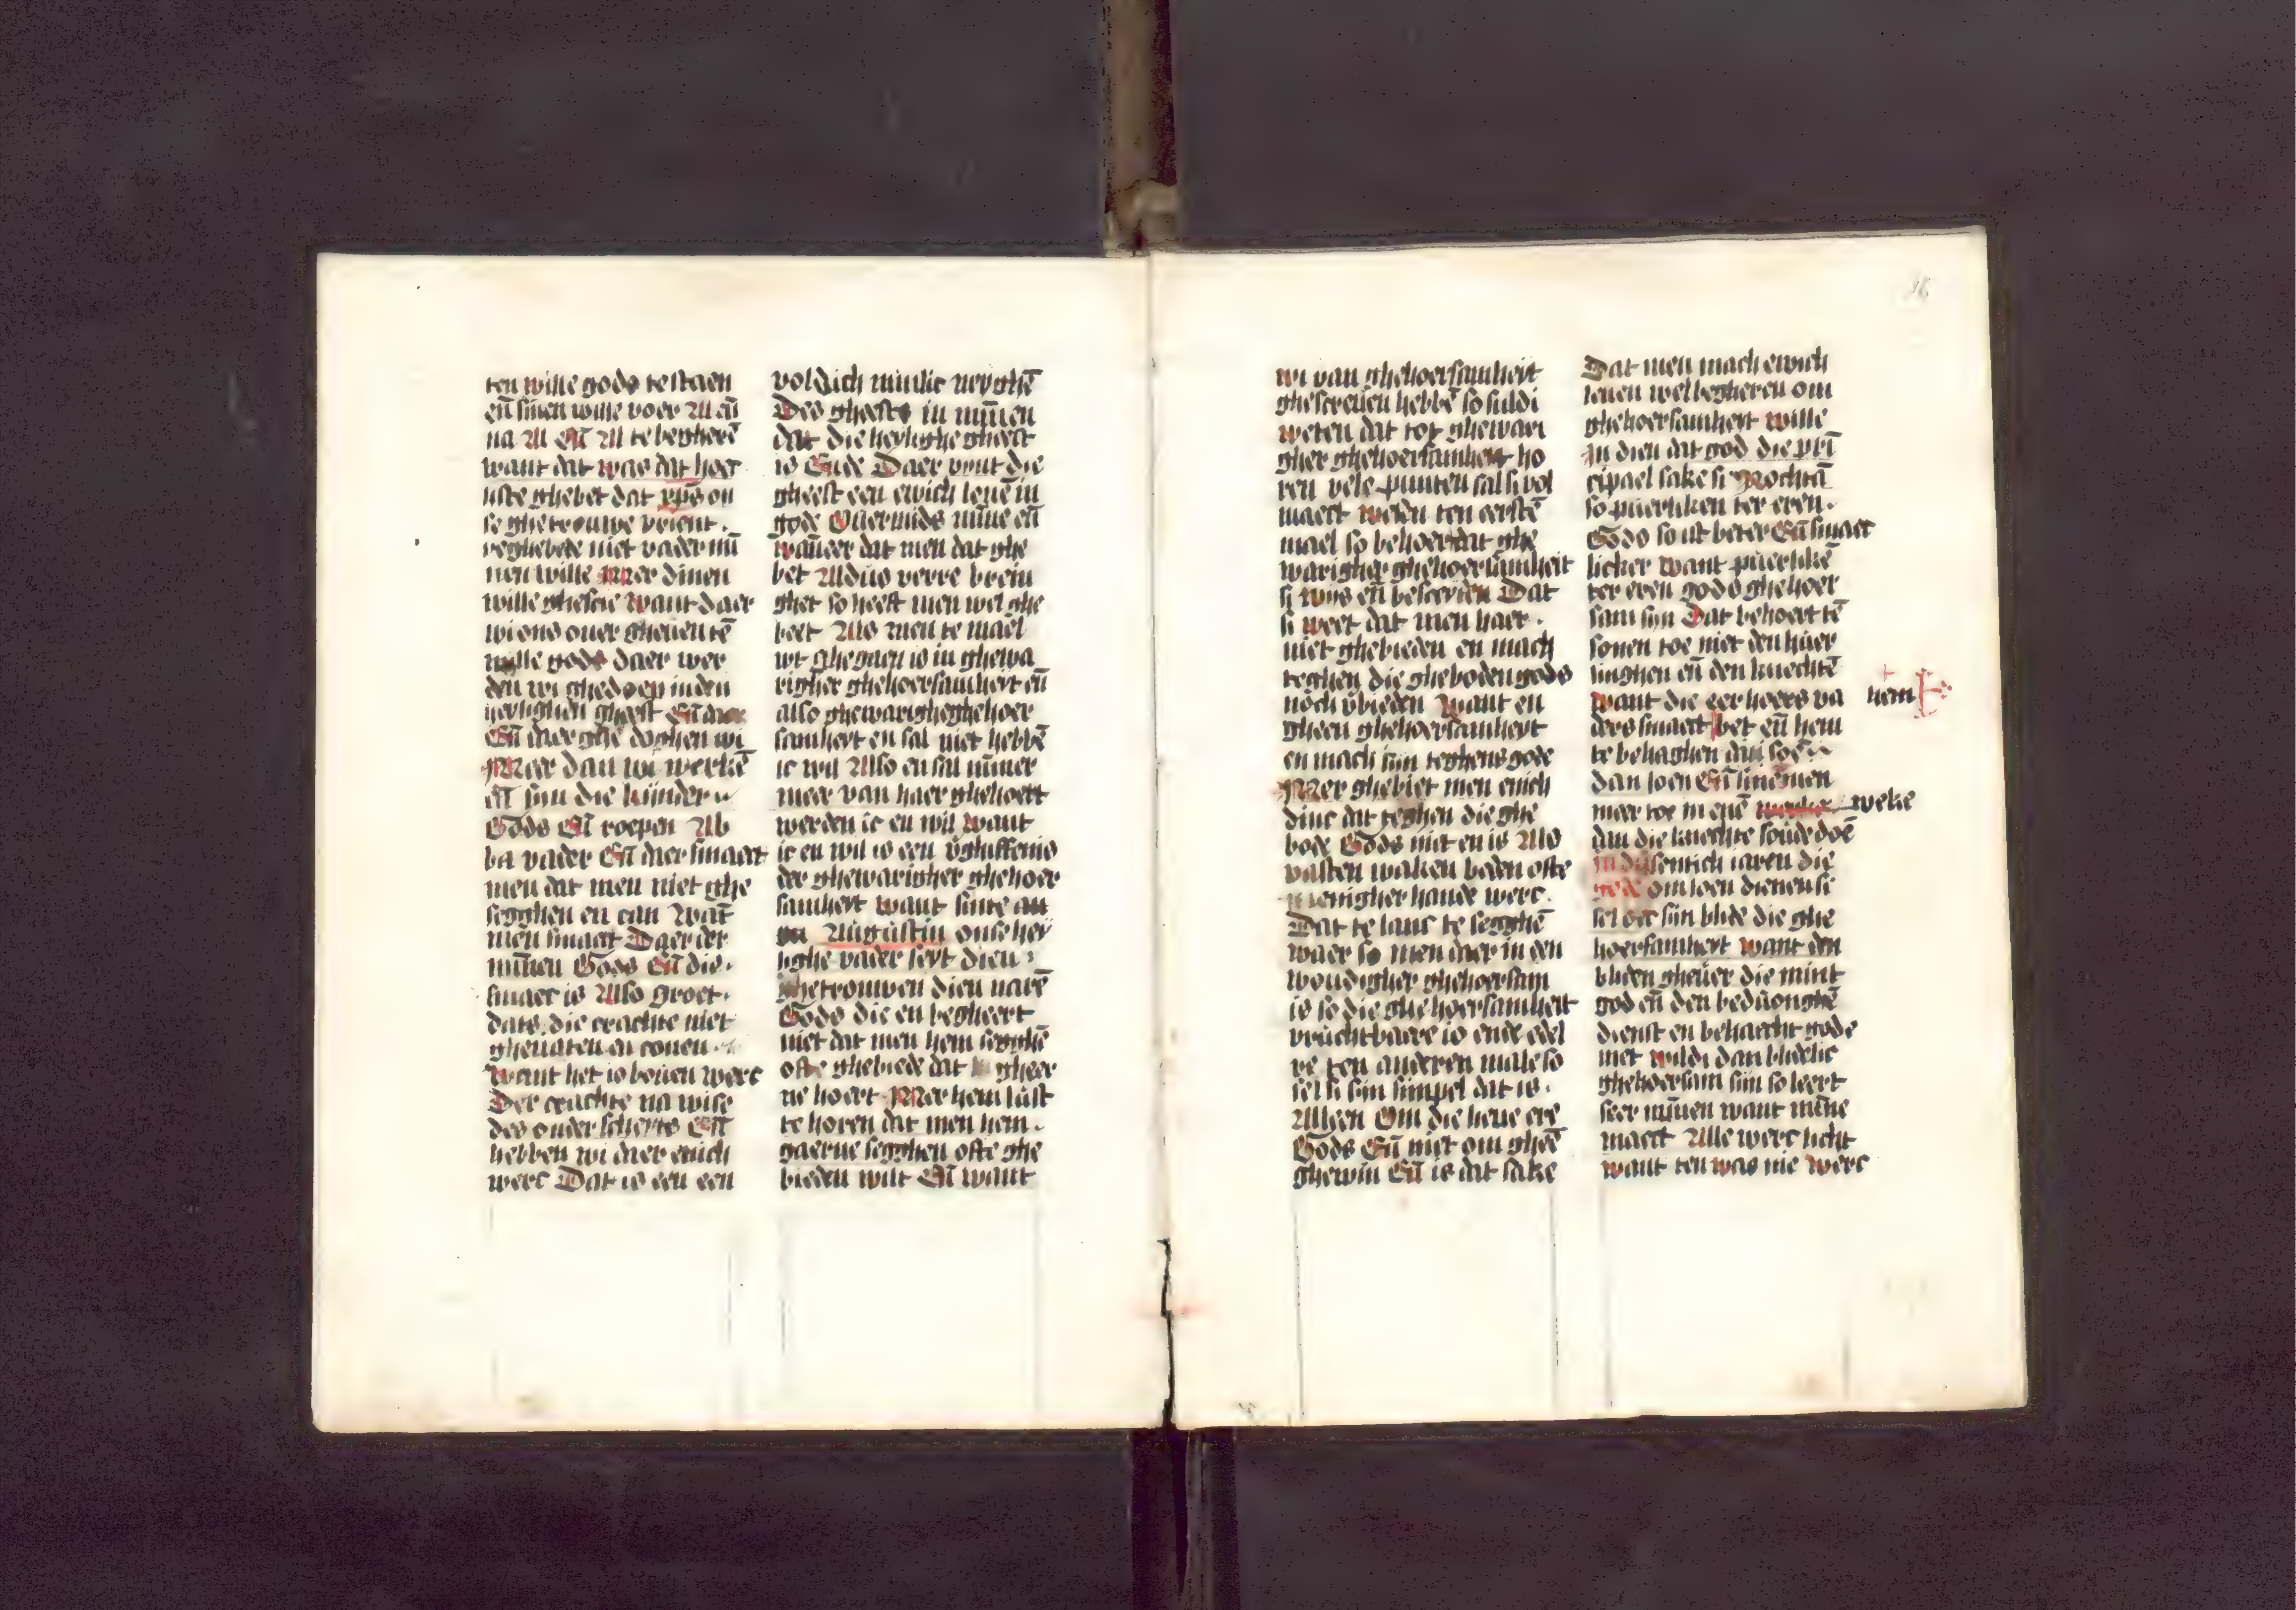 ten wille gods te staen
eñ sinen wille voer Al eñ
na Al Eñ Al te begherē
want dat was dat hoer
liste ghebet dat xpūs on
se ghetrouwe vrient.
veghebede niet vader mī
nen wille Mer dinen
wille ghescie Want daer
wi ons ouer gheuen tē
wille gods daer wer
den wi ghedreuen in den
heylighen gheest Eñ
Eñ daer ghe doghen wi
Meer dan wi werkē
eñ sijn die kijnder
Gods Eñ roepen Ab
ba vader Eñ daer smaect
men dat men niet ghe
segghen en can Wat
men smaect Daer der
mīnen Gods Eñ die.
smaec is Also groet.
dats die crachte niet
gheuaten en conen.
Want het is bouen werc
Der crachte na wise
des onderscheyts Eñ
hebben wi daer enich
werc Dat is een een
voldich minlic neyghē
Des gheests in mīnen
dat die heylighe gheest
is Ende Daer vynt die
gheest een ewich leuē in
gode Ouermids mīne eñ
wāneer dat men dat ghe
bet Aldus verre brein
ghet so heeft men wel ghe
beet Als men te mael
wt ghegaen is in ghewa
righer ghehoersamheyt eñ
also ghewarigheghehoer
samheyt en sal niet hebbē
ic wil Also en sal nūmer
meer van haer ghehoert
werden ic en wil want
ic en wil is een v̄ghiffenis
der ghewarigher ghehoer
samheyt want sinte au
Augustin onse hey
lighe vader seyt dien
ghetrouwen dien narē
Gods die en begheert
niet dat men hem segghē
ofte ghebiede dat gheer
ne hoert Mer hem lust
te horen dat men hem.
gaerne segghen ofte ghe
bieden wilt Eñ want
wi van ghehoersamheyt
ghescreuen hebbē so suldi
weten dat tot ghewari
gher ghehoersamheyt ho
ren vele punten sal si vol
maect wesen ten eerstē
mael so behoert dat ghe
warigher ghehoersamheit
si wijs eñ besceyden Dat
si weet dat men haer.
niet ghebieden en mach
teghen die gheboden gods
noch v̄bieden Want en
gheen ghehoersamheyt
en mach sijn teghens gode
Mer ghebiet men enich
dinc dat teghen die ghe
bode Gods niet en is Als
vasten waken beden ofte
enigher hande werc.
Dat te lanc te segghē
waer so men daer in den
woudigher ghehoersam
is so die ghehoersamheit
vruchtbaere is ende edel
re ten anderen male so
sel si sijn simpel dat is.
Alleen Om die lieue ere
Gods Eñ niet om gheē
ghewin Eñ is dat sake
Dat men mach ewich
leuen wel begheren om
ghehoersamheyt wille
In dien dat god die prī
cipael sake si Nochtā
so puerliken ter eren.
Gods so ist beter Eñ smaec
licker Want puerlikē
ter eren gods ghehoer
sam sijn Dat behoert tē
sonen toe niet den huer
linghen eñ den knechtē
want die eer haers va
ders smaect bet eñ hem
hem
te behaghen
dan loen Eñ sinēmen
meer toe in enē weke
dan die knechte soude doē
in dusentich iaren die
gode om loen dienen si
sel oec sijn blide die ghe
hoersamheyt want den
bliden gheuer die mint
god eñ den beduonghē
dienst en behaecht gode
niet wildi dan blidelic
ghehoersam sijn so leert
seer mīnen want mīne
maect Alle werc licht
want ten was nie werc